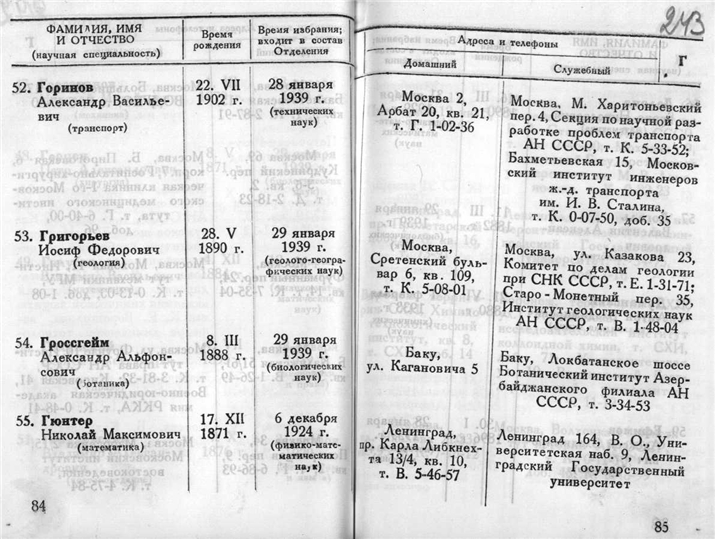 ФАМИЛИЯ, ИМЯ
И ОТЧЕСТВО
(научная специальность)
Время
рождения
Время избрания;
входит в состав
Отделения
52. Горинов
Александр Василье-
вич
(транспорт)
22. VII
1902 г.
28 января
1939 г.
(технических
наук)
53. Григорьев
Иосиф Федорович
(геология)
28. V
1890 г.
29 января
1939 г.
(геолого-геогра-
фических наук)
54. Гроссгейм
Александр Альфон-
сович
(ботаника)
8. III
1888 г.
29 января
1939 г.
(биологических
наук)
55. Гюнтер
Николай Максимович
(математика)
17. XII
1871 г.
6 декабря
1924 г.
(физико-мате-
матических
наук)
84
243
Адреса и телефоны
Г
Домашний
Служебный
Москва 2,
Арбат 20, кв. 21,
т. Г. 1-02-36
Москва, М. Харитоньевский
пер. 4, Секция по научной раз-
работке проблем транспорта
АН СССР, т. К. 5-33-52;
Бахметьевская 15, Москов-
ский институт инженеров
ж.-д. транспорта
им. И. В. Сталина,
т. К. 0-07-50, доб. 35
Москва,
Сретенский буль-
вар 6, кв. 109,
т. К. 5-08-01
Москва, ул. Казакова 23,
Комитет по делам геологии
при СНК СССР, т. Е. 1-31-71;
Старо-Монетный пер. 35,
Институт геологических наук
АН СССР, т. В. 1-48-04
Баку,
ул. Кагановича 5
Баку, Локбатанское шоссе
Ботанический институт Азер-
байджанского филиала АН
СССР, т. 3-34-53
Ленинград,
пр. Карла Либкнех-
та 13/4, кв. 10,
т. В. 5-46-57
Ленинград 164, В. О., Уни-
верситетская наб. 9, Ленин-
градский Государственный
университет
85